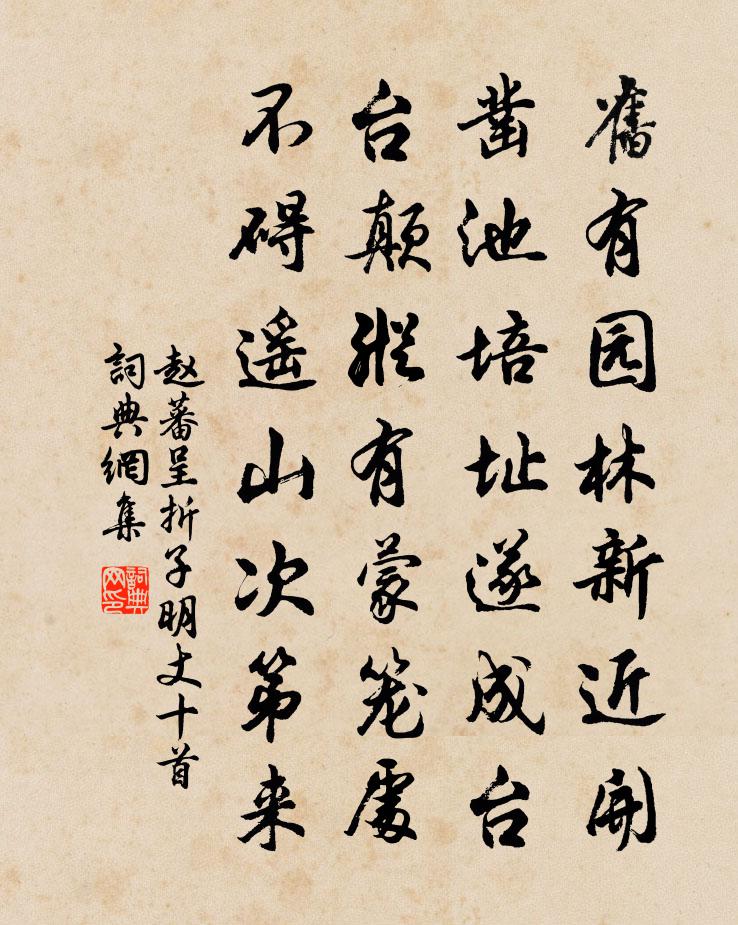 舊有园林新近開
凿池培址遂成台
台颠縱有蒙笼處
不碍遥山次第来
赵蕃呈折子明丈十首
詞典網集
詞典网印